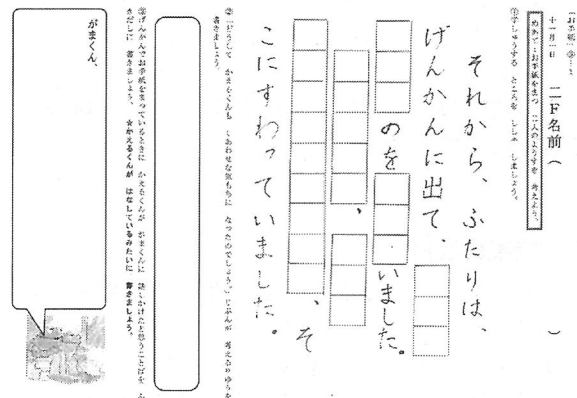 「お手紙」
十一月一日 二F名前（ ）
めあて：お手紙をまつ 二人のようすを 考えよう。
①学しゅうする ところを しましょう。
それから、ふたりは、
げんかんに出て、
いました。
のを
、
、そ
こにすわっていました。
②「どうして かえるくんも しあわせな気もちに なったのでしょう。」じぶんが 考えるりゆうを
書きましょう。
③げんかんでお手紙をまっているときに かえるくんが がまくんに 話しかけたと思うことばを ふ
きだしに 書きましょう。★かえるくんが はなしているみたいに 書きましょう。
がまくん、